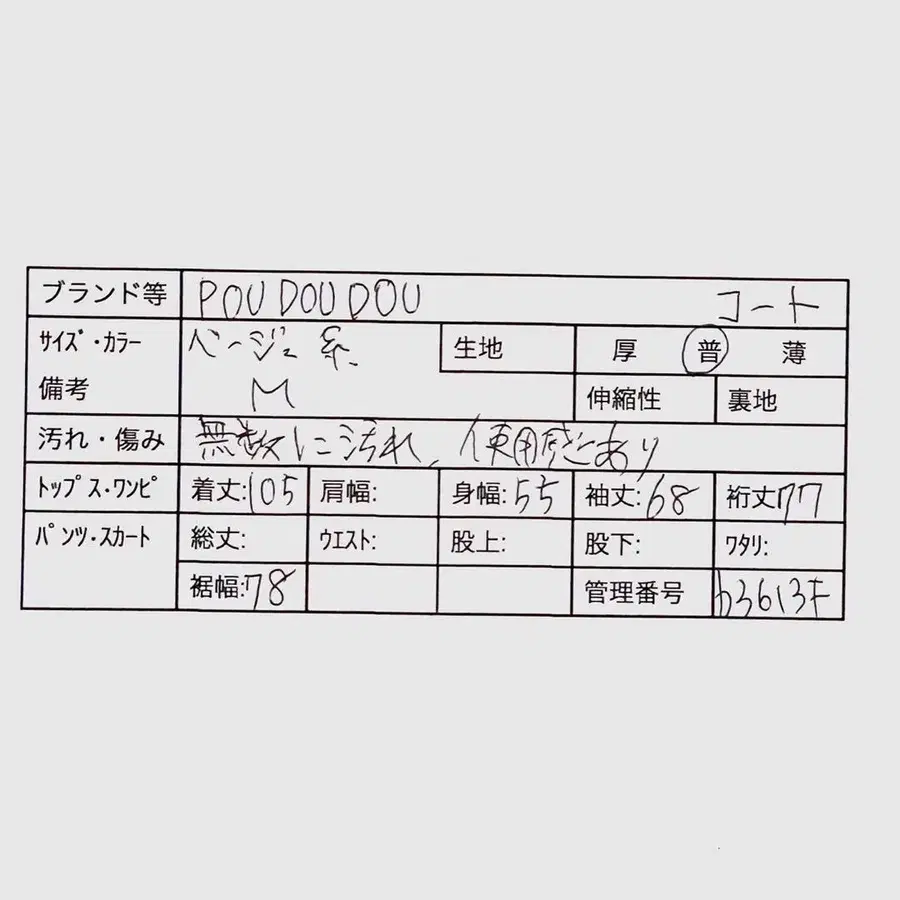 ブランド等 POU DOU DOU コート
サイズ・カラー ベージュ系 生地 厚 普 薄
備考 M 伸縮性 裏地
汚れ・傷み 無数に汚れ、使用感とあり
トップス・ワンピ 着丈:105 肩幅: 身幅:55 袖丈:68 裄丈77
パンツ・スカート 総丈: ウエスト: 股上: 股下: ワタリ:
裾幅:78 管理番号 b3613F